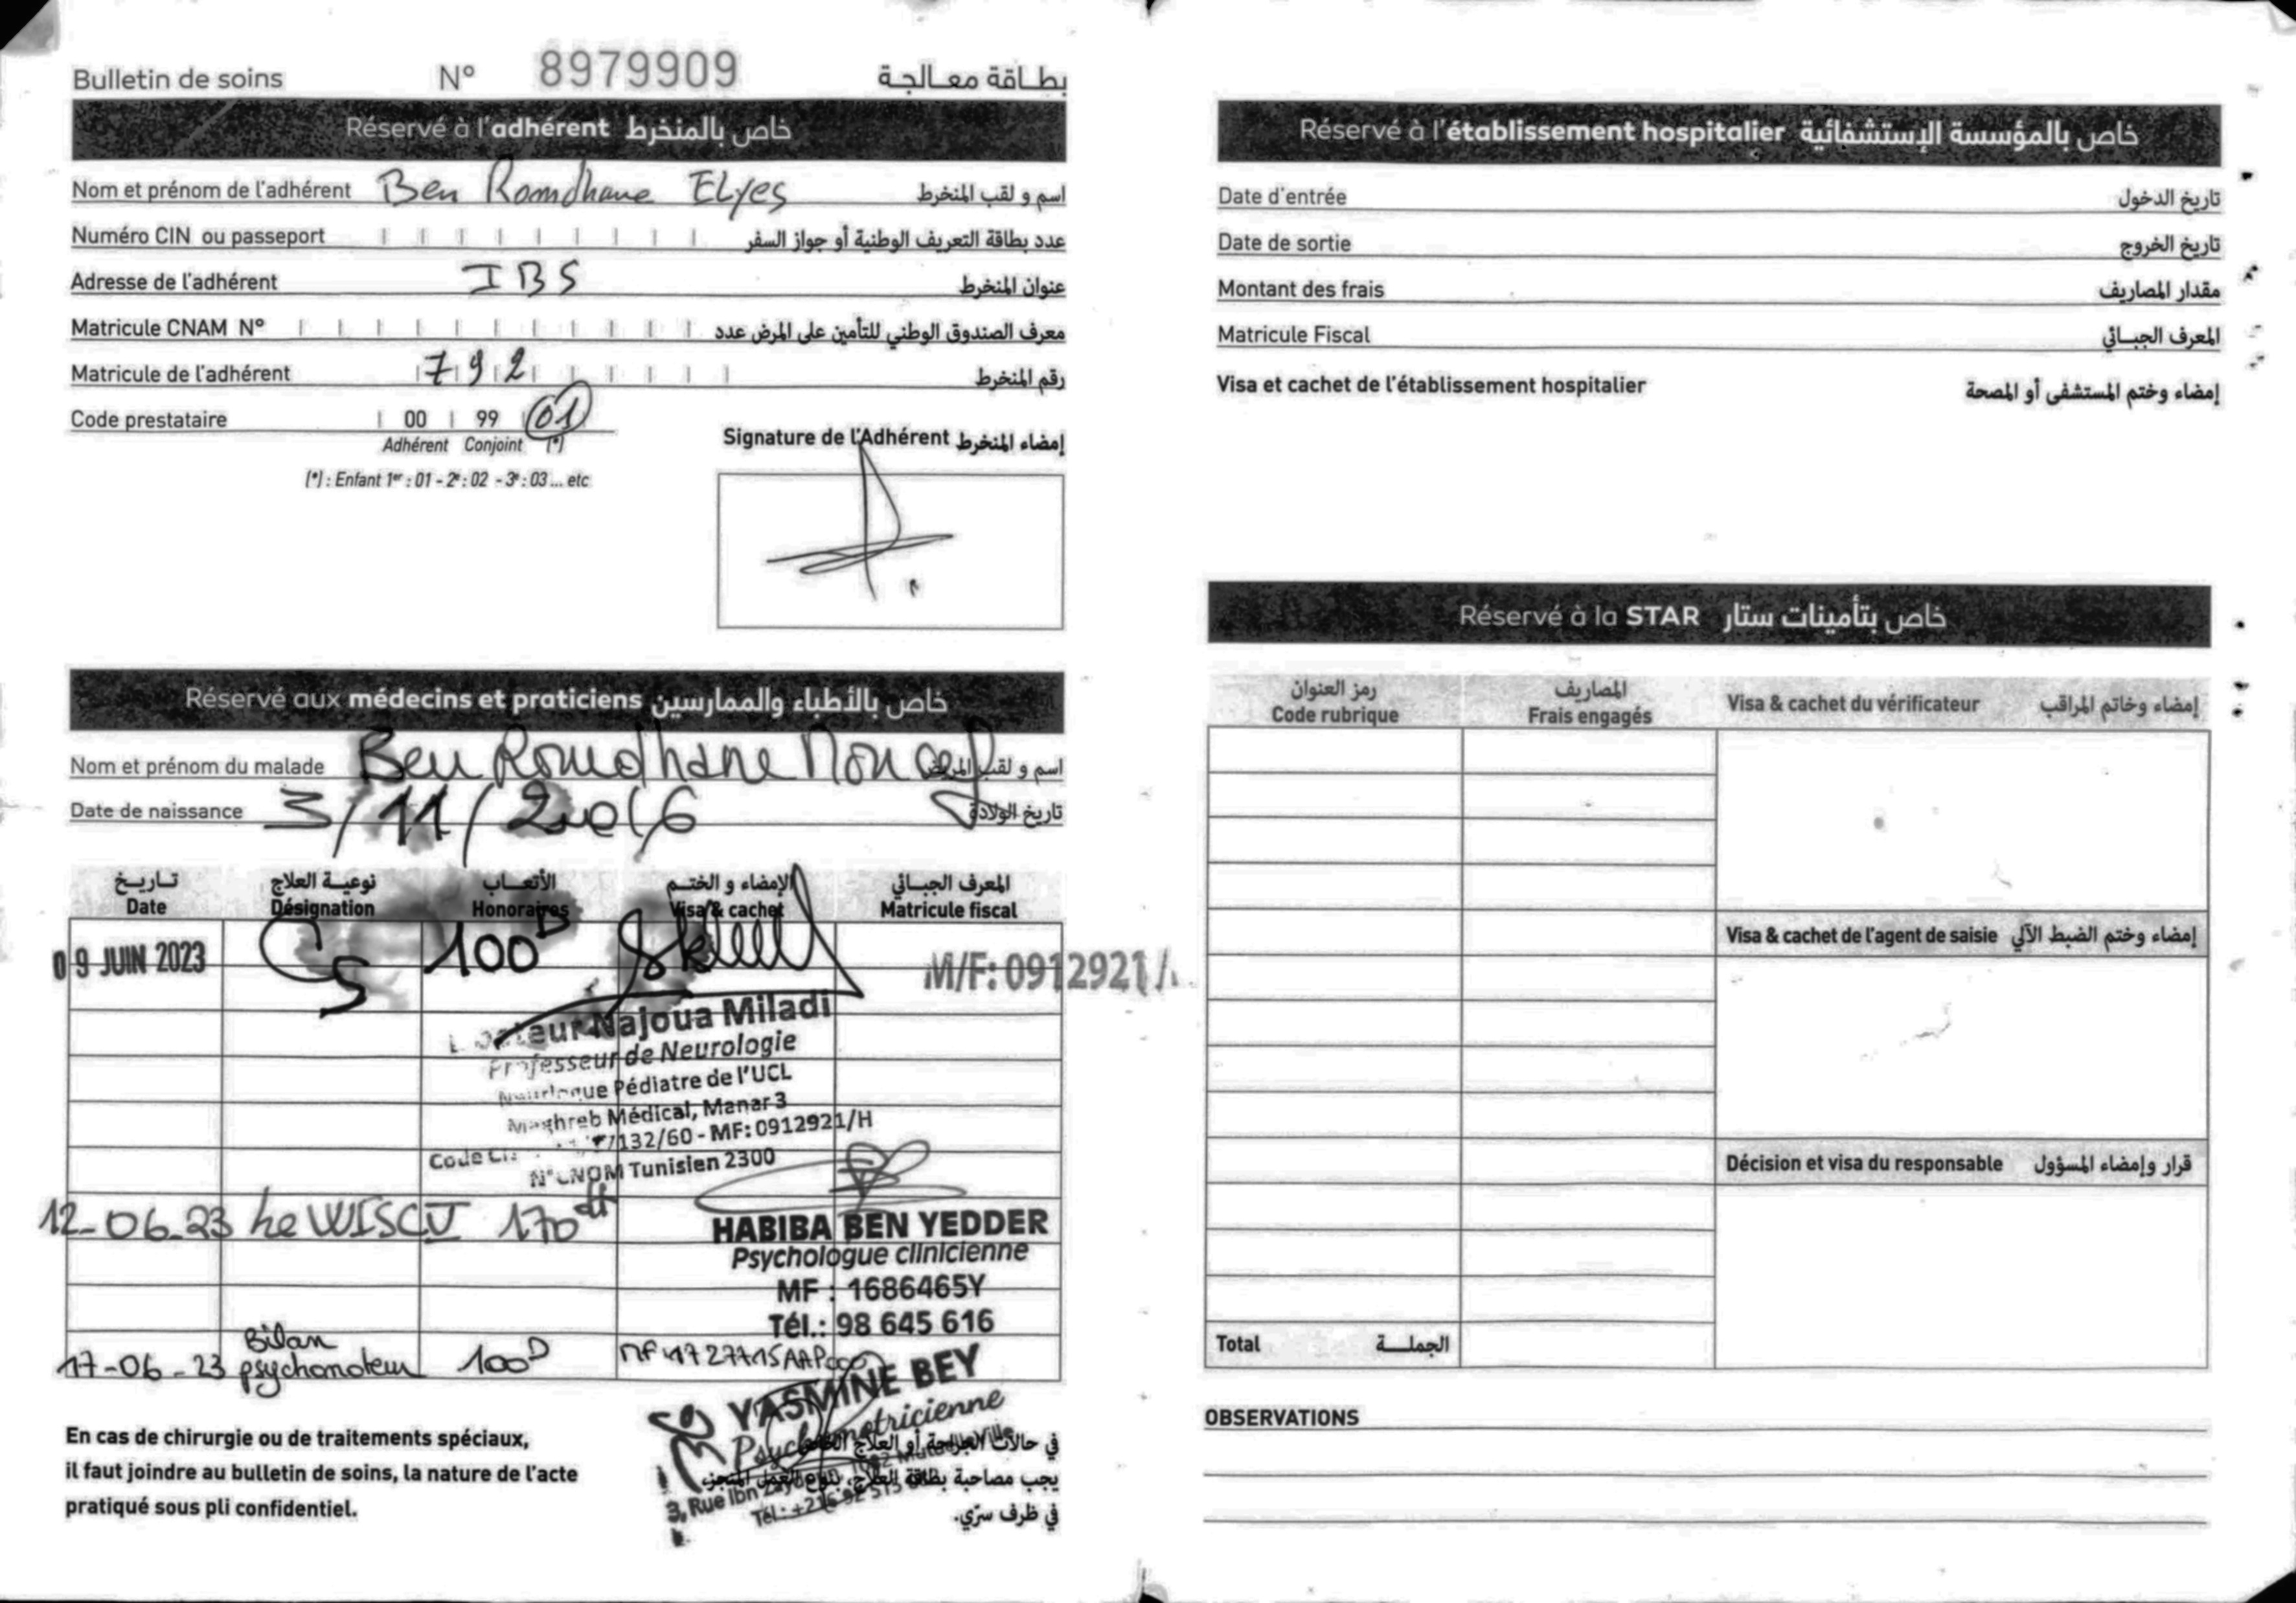 Bulletin de soins N° 8979909 بطاقة معالجة
Réservé à l'adhérent خاص بالمنخرط
Nom et prénom de l'adhérent Ben Romdhane ELyes اسم و لقب المنخرط
Numéro CIN ou passeport عدد بطاقة التعريف الوطنية أو جواز السفر
Adresse de l'adhérent IBS عنوان المنخرط
Matricule CNAM N° معرف الصندوق الوطني للتأمين على المرض عدد
Matricule de l'adhérent 792 رقم المنخرط
Code prestataire 00 99 01
Adhérent Conjoint (*)
(*) : Enfant 1er : 01 - 2e : 02 - 3e : 03 ... etc
Signature de l'Adhérent إمضاء المنخرط
Réservé aux médecins et praticiens خاص بالأطباء والممارسين
Nom et prénom du malade Ben Romdhane Moncef اسم و لقب المريض
Date de naissance 3/11/2016 تاريخ الولادة
تاريخ نوعية العلاج الأتعاب الإمضاء و الختم المعرف الجبائي
Date Désignation Honoraires Visa & cachet Matricule fiscal
09 JUIN 2023 CS 100D M/F: 0912921/
Docteur Najoua Miladi
Professeur de Neurologie
Neurologue Pédiatre de l'UCL
Maghreb Médical, Manar 3
/132/60 - MF: 0912921/H
N° CNOM Tunisien 2300
12-06-23 he WISC V 170dt
HABIBA BEN YEDDER
Psychologue clinicienne
MF : 1686465Y
Tél.: 98 645 616
17-06-23 Bilan psychomoteur 100D MF 1727715AAP000
YASMINE BEY
Psychomotricienne
3, Rue Ibn
Tél : +216 92 513
En cas de chirurgie ou de traitements spéciaux,
il faut joindre au bulletin de soins, la nature de l'acte
pratiqué sous pli confidentiel.
في حالات الجراحة أو العلاج
يجب مصاحبة بطاقة العلاج، بنوع العمل المنجز،
في ظرف سرّي.
Réservé à l'établissement hospitalier خاص بالمؤسسة الإستشفائية
Date d'entrée تاريخ الدخول
Date de sortie تاريخ الخروج
Montant des frais مقدار المصاريف
Matricule Fiscal المعرف الجبائي
Visa et cachet de l'établissement hospitalier إمضاء وختم المستشفى أو المصحة
Réservé à la STAR خاص بتأمينات ستار
رمز العنوان المصاريف
Code rubrique Frais engagés Visa & cachet du vérificateur إمضاء وخاتم المراقب
Visa & cachet de l'agent de saisie إمضاء وختم الضبط الآلي
Décision et visa du responsable قرار وإمضاء المسؤول
Total الجملة
OBSERVATIONS